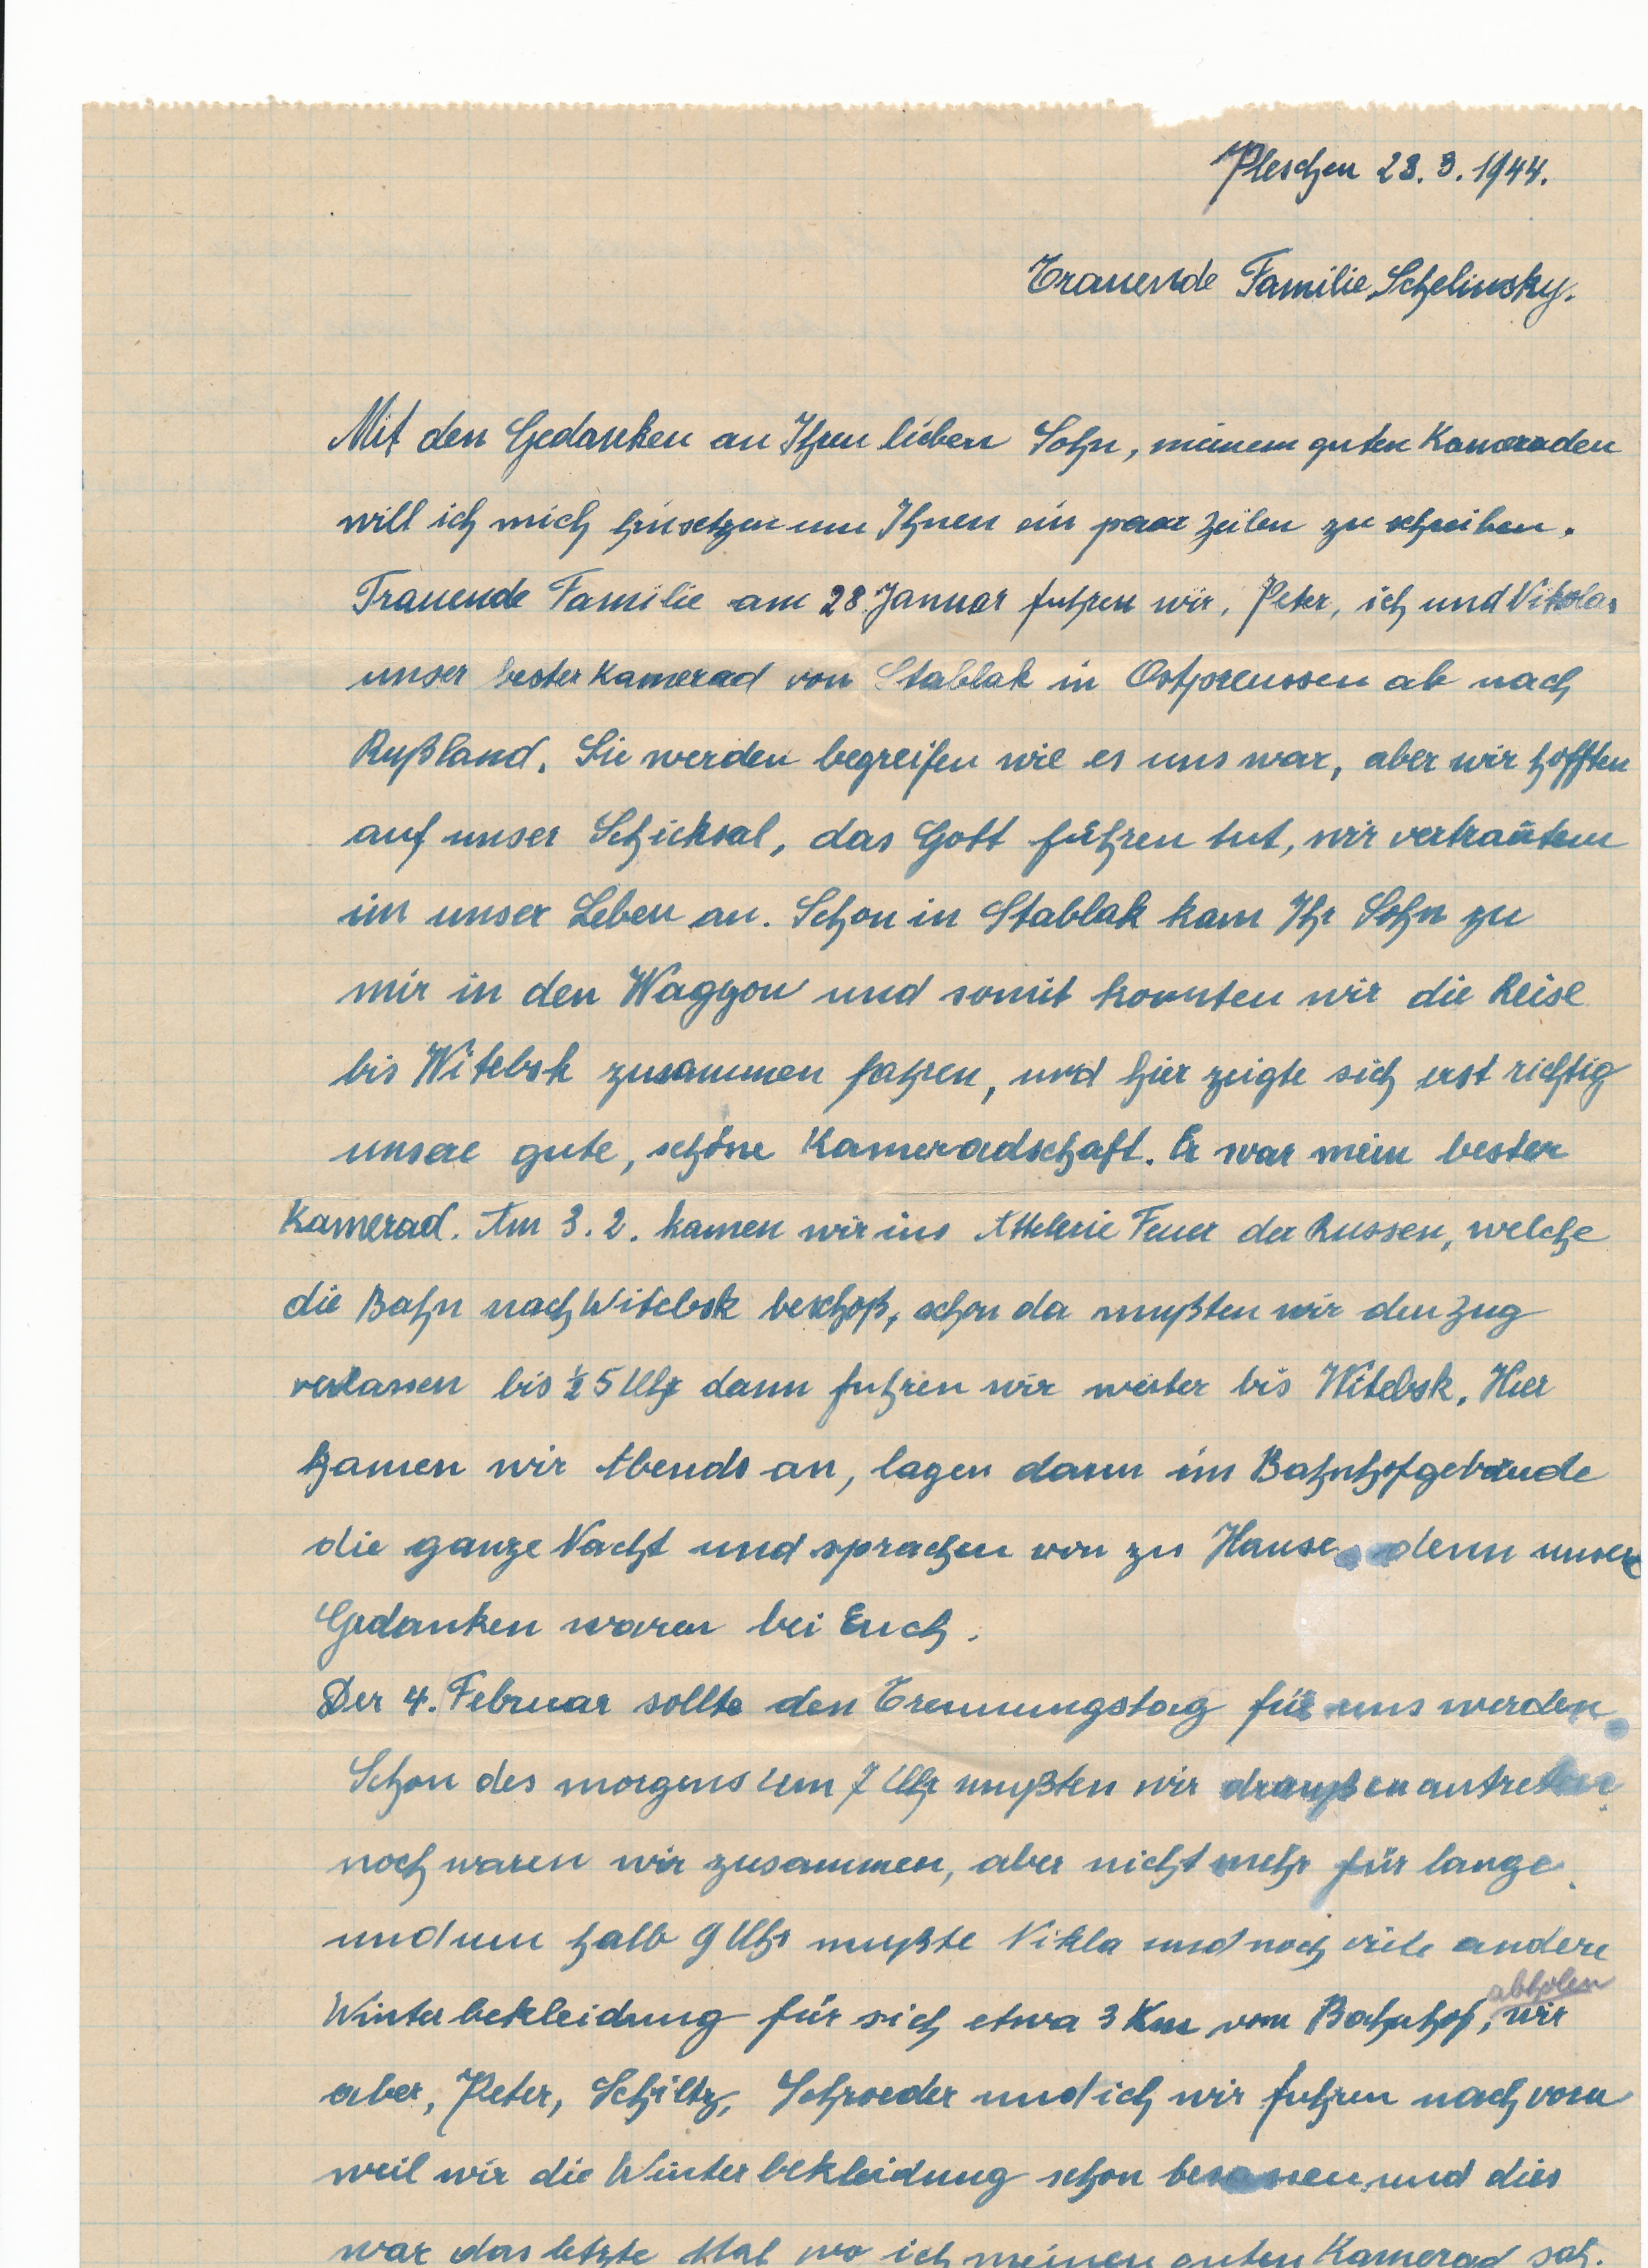 Pleschen 23.3.1944.
Trauende Familie Schelinsky.
Mit den Gedanken an Ihren lieben Sohn, meinem guten Kameraden
will ich mich hinsetzen um Ihnen ein paar Zeilen zu schreiben.
Trauende Familie am 28 Januar fuhren wir, Peter, ich und Nikolas
unser bester Kamerad von Stablak in Ostpreussen ab nach
Rußland. Sie werden begreifen wie es uns war, aber wir hofften
auf unser Schicksal, das Gott führen tut, wir vertrautem
im unser Leben an. Schon in Stablak kam Ihr Sohn zu
mir in den Waggon und somit konnten wir die Reise
bis Witebsk zusammen fahren, und hier zeigte sich erst richtig
unsere gute, schöne Kameradschaft. Er war mein bester
Kamerad. Am 3.2. kamen wir ins Attelerie Feuer der Russen, welche
die Bahn nach Witebsk beschoß, schon da mußten wir den Zug
verlassen bis ½ 5 Uhr dann fuhren wir weiter bis Witebsk. Hier
kamen wir Abends an, lagen dann im Bahnhofgebäude
die ganze Nacht und sprachen von zu Hause denn unsere
Gedanken waren bei Euch.
Der 4. Februar sollte den Trennungstag für uns werden.
Schon des morgens um 7 Uhr mußten wir draußen antreten
noch waren wir zusammen, aber nicht mehr für lange.
und um halb 9 Uhr mußte Nikla und noch viele andere
abholen
Winterbekleidung für sich etwa 3 Km vom Bahnhof, wir
aber, Peter, Schiltz, Schroeder und ich wir fuhren nach vorn
weil wir die Winterbekleidung schon besassen, und dies
war das letzte Mal wo ich meinen guten Kamerad sah.